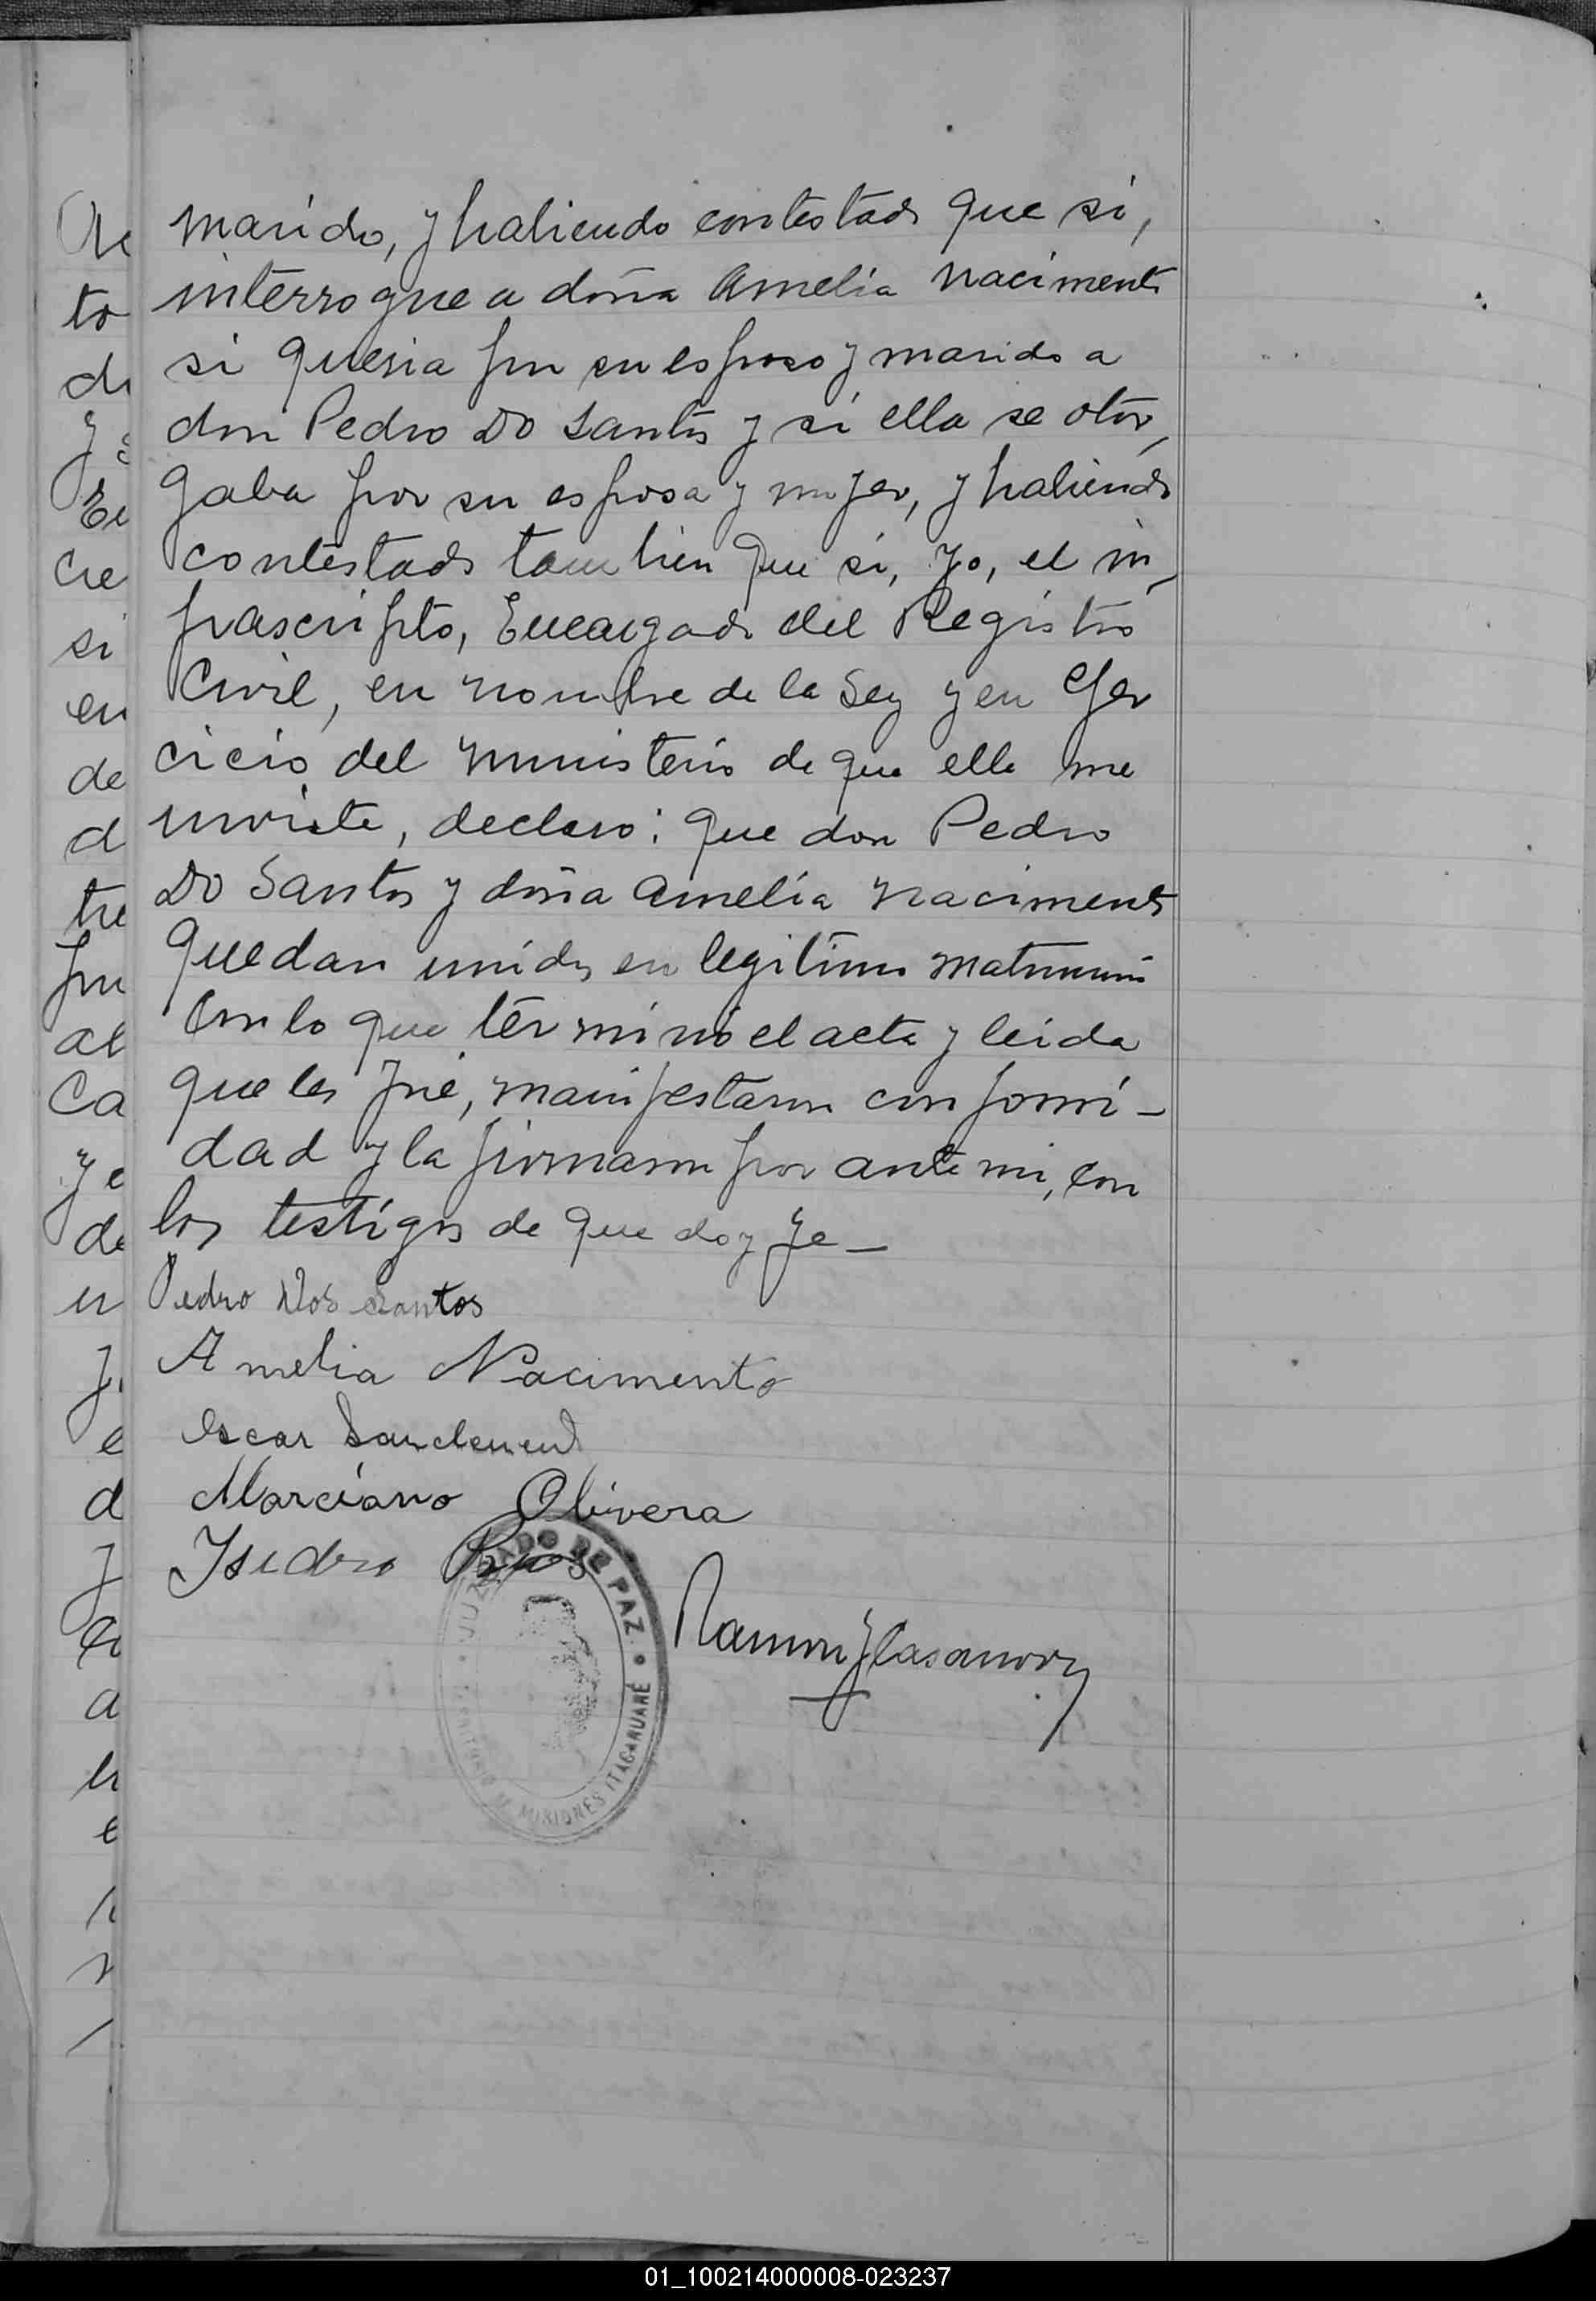 marido, y habiendo contestado que si,
interrogue a doña Amelia Nacimento
si queria por su esposo y marido a
don Pedro Do Santos y si ella se otor,
gaba por su esposa y mujer, y habiendo
contestado tambien que si, yo, el in,
frascripto, Encargado del Registro
Civil, en nombre de la Ley y en ejer
cicio del ministerio de que ella me
inviste, declaro: que don Pedro
Do Santos y doña Amelia Nacimento
quedan unidos en legitimo matrimonio
Con lo que terminó el acta y leida
que les fué, manifestaron conformi-
dad y la firmaron por ante mi, con
los testigos de que doy fe-
Pedro Dos Santos
Amelia Nacimento
Oscar
Marciano Olivera
Isidro Rios
JUZGADO DE PAZ
Ramon J Casanova
TERRITORIO DE MISIONES ITACARUARÉ
Ac
to
di
y
Cre
si
en
de
d
tre
por
al
Ca
y e
de
u
e
d
a
h
e
01_100214000008-023237